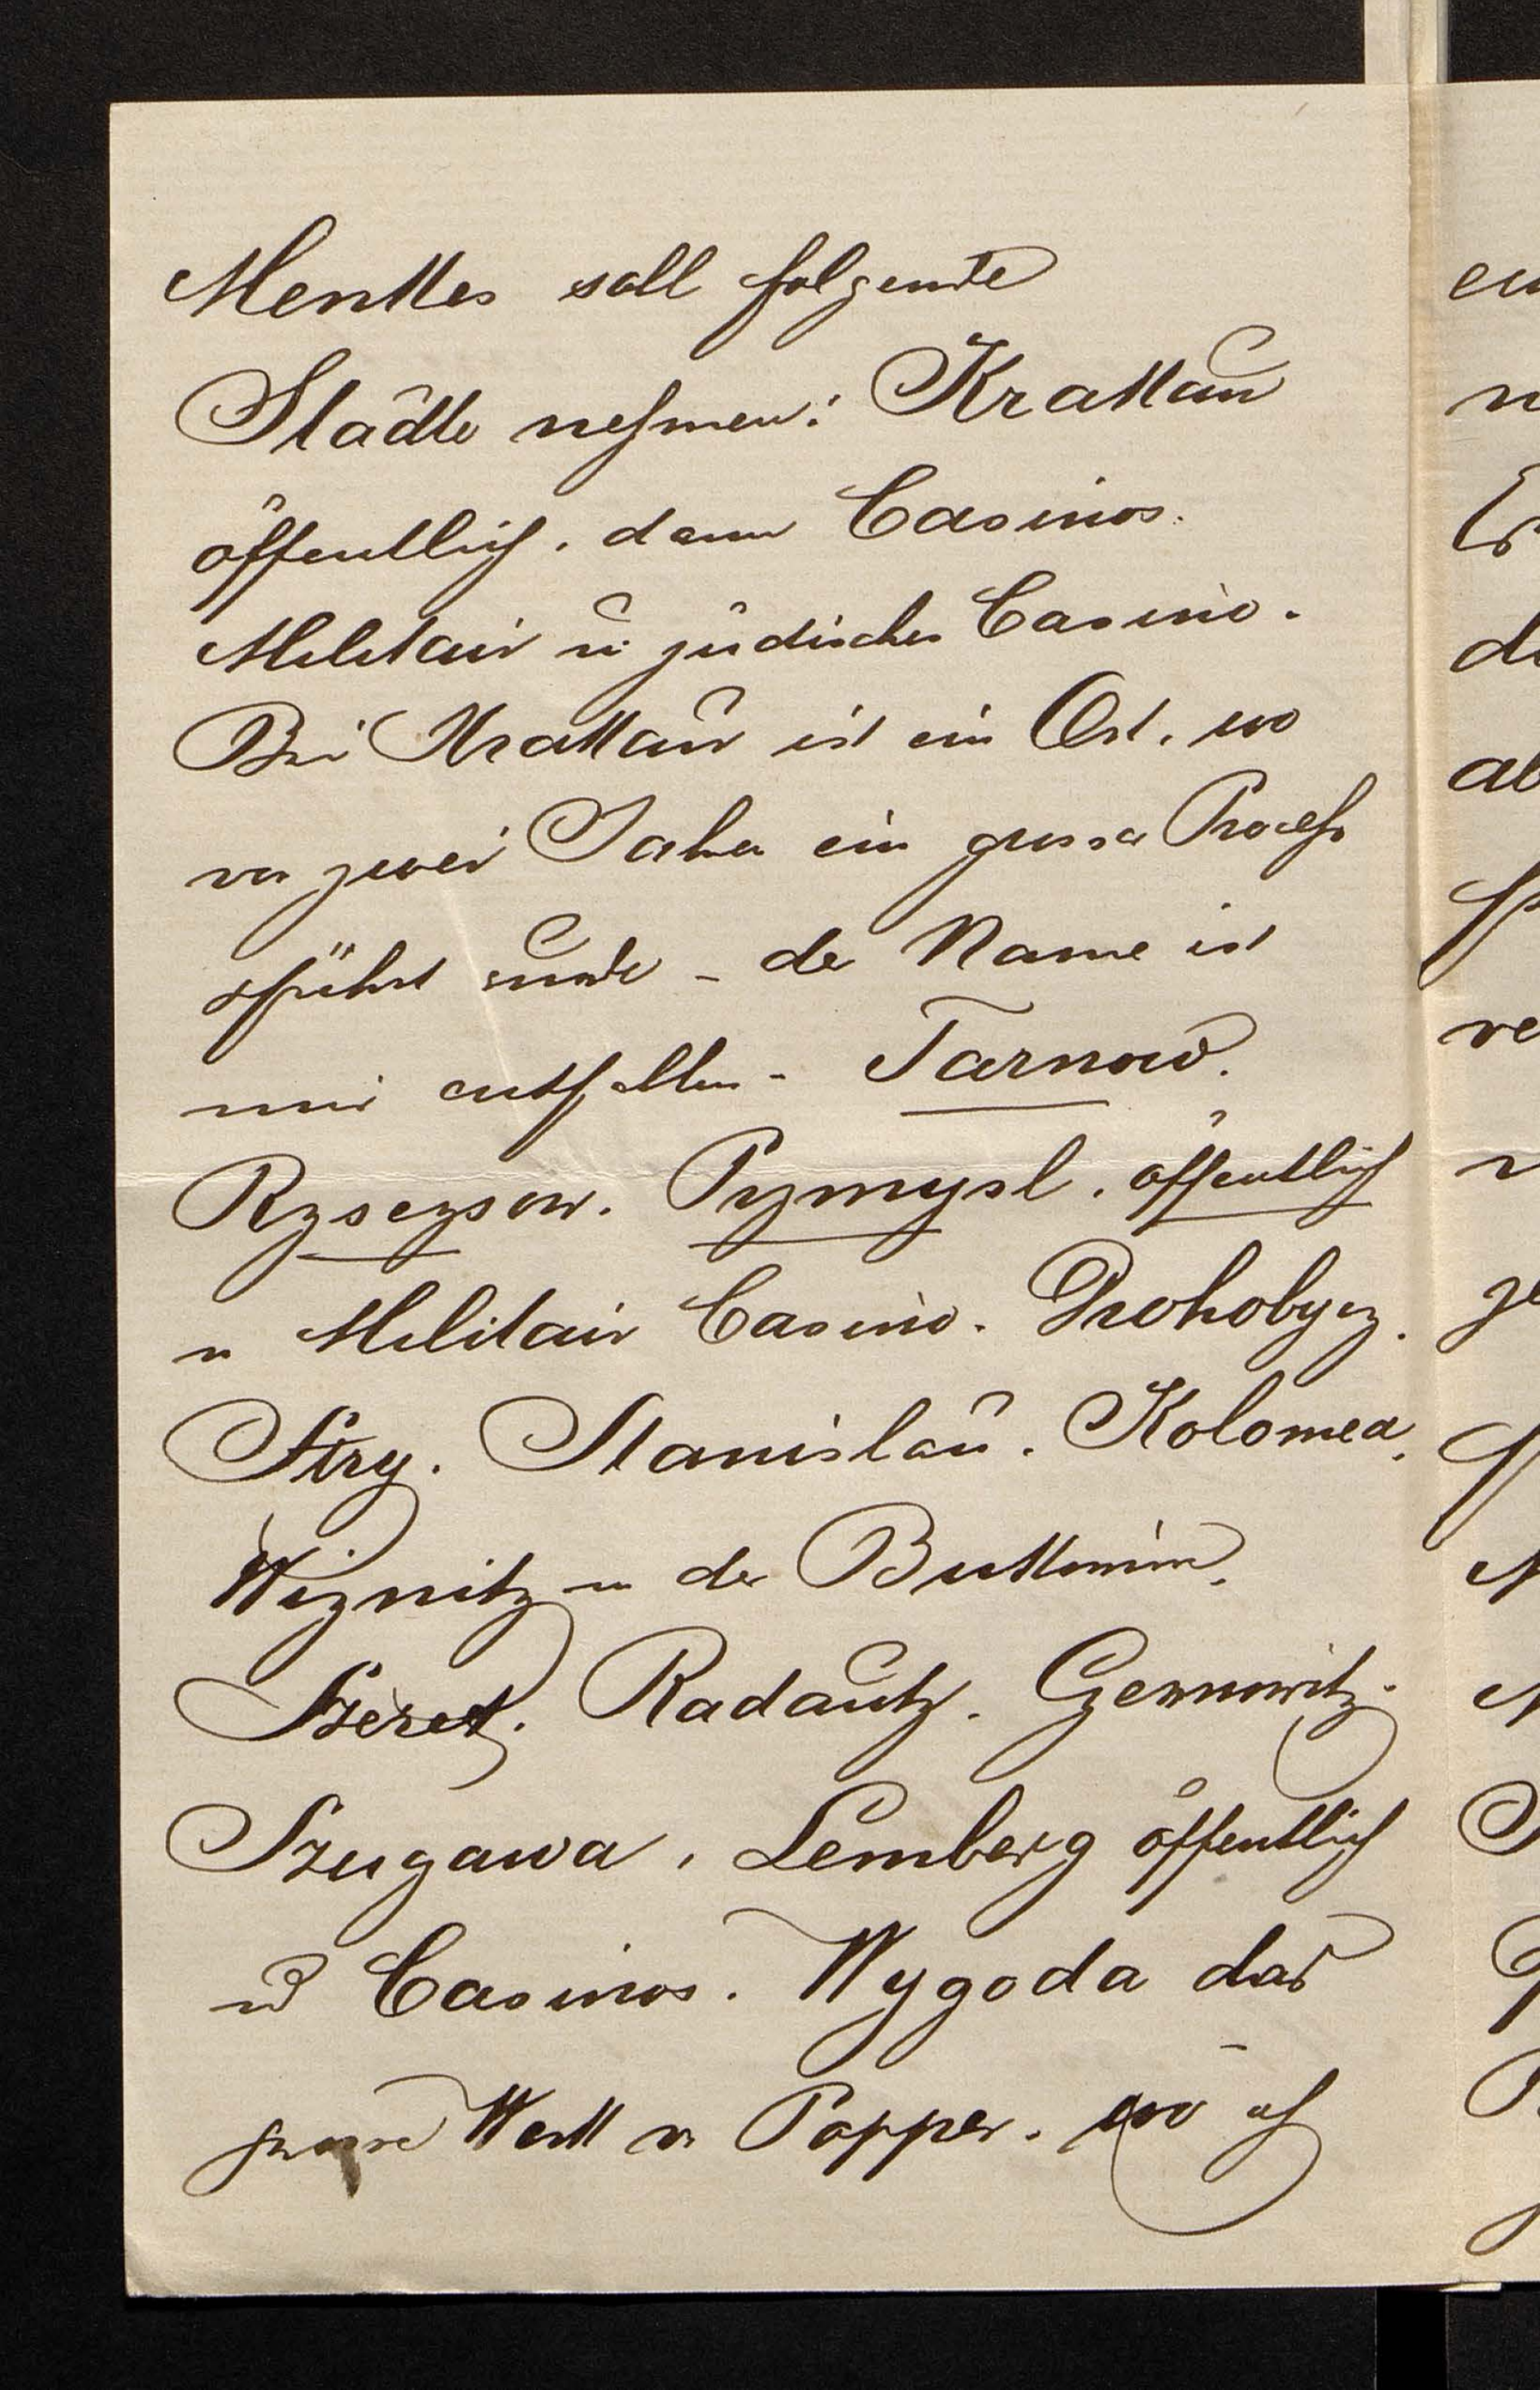 Menkes soll folgende
Städte nehmen: Krakau
öffentlich, dann Casinos.
Militair u. jüdisches Casino.
Bei Krakau ist ein Ort, wo
vor zwei Jahren ein grosser Process
geführt wurde – der Name ist
mir entfallen – Tarnow.
Rzsezsow. Pzmysl. öffentlich
u Militair Casino. Drohobycz.
Stry. Stanislau. Kolomea.
Wiznitz in der Bukowina.
Szeret. Radautz. Czernowitz.
Szugawa, Lemberg öffentlich
und Casinos. Wygoda das
grosse Werk v. Popper. wo